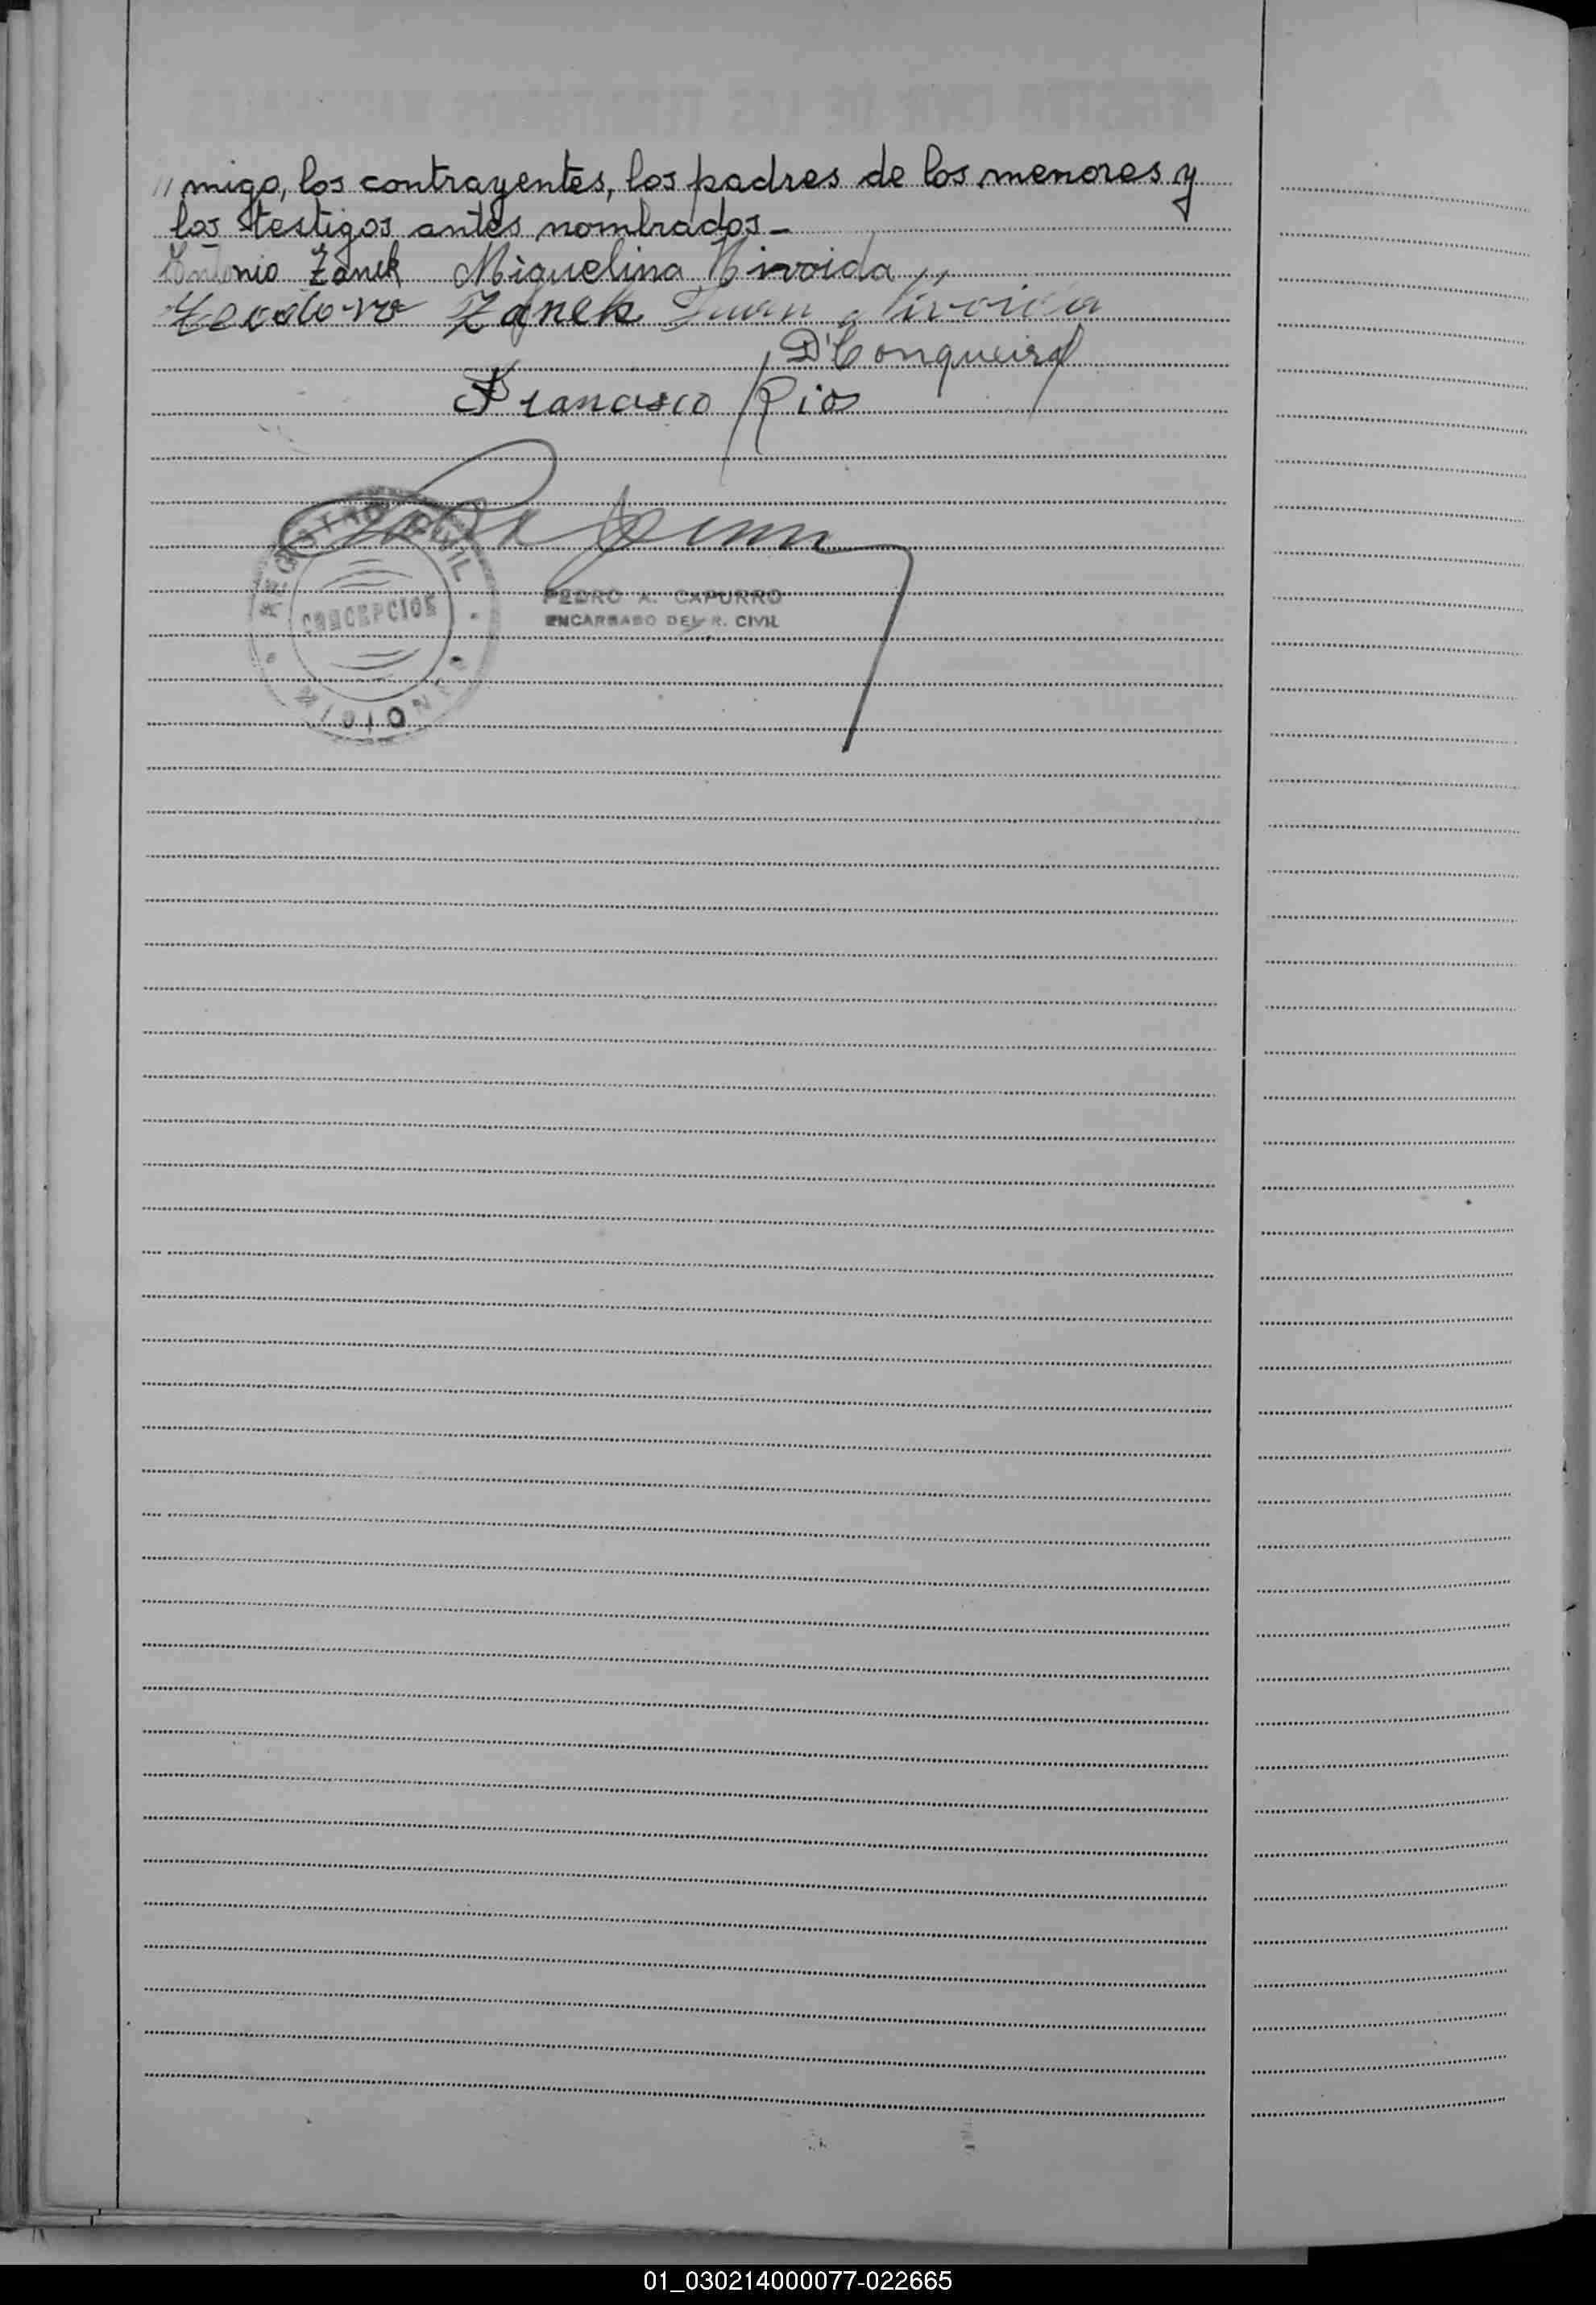 // migo, los contrayentes, los padres de los menores y
los testigos antes nombrados_
Antonio Zanek Miguelina Nivoida
Teodoro Zanek Juan Nivoida
Francisco Rios
REGISTRO CIVIL
CONCEPCION
MISIONES
PEDRO A. CAPURRO
ENCARGADO DEL R. CIVIL
01_030214000077-022665